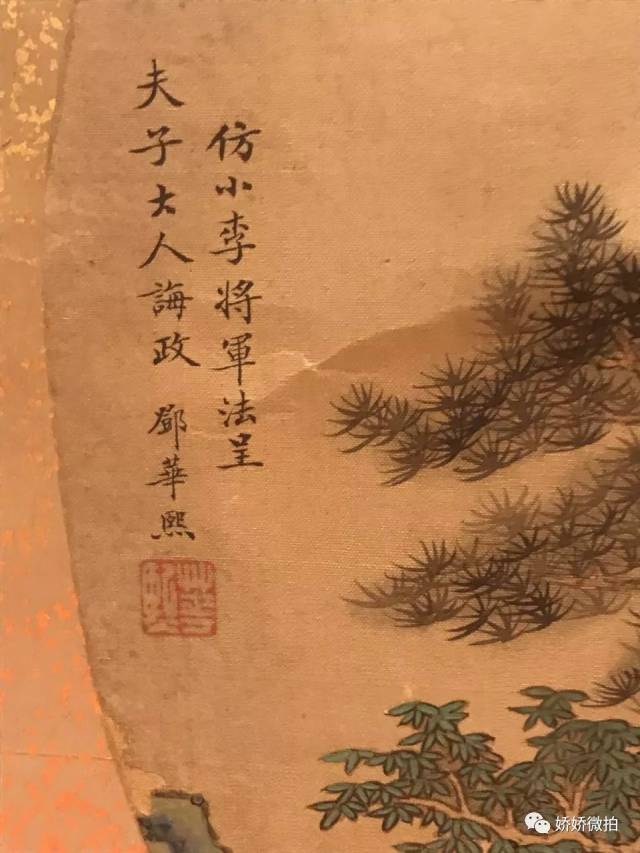 仿小李將軍法呈
夫子大人誨政 鄧華熙
娇娇微拍